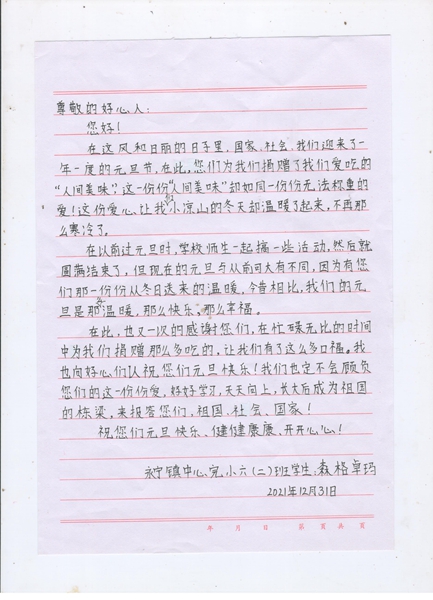 尊敬的好心人：
您好！
在这风和日丽的日子里，国家、社会、我们迎来了一
年一度的元旦节，在此，您们为我们捐赠了我们爱吃的
“人间美味”，这一份份“人间美味”却如同一份份无法称重的
爱！这份爱心、让我们小凉山的冬天却温暖了起来，不再那
么寒冷了。
在以前过元旦时，学校师生一起搞一些活动，然后就
圆满结束了，但现在的元旦与从前可大有不同，因为有您
们那一份份从冬日送来的温暖，今昔相比，我们的元
旦是那么温暖，那么快乐、那么幸福。
在此，也又一次的感谢您们，在忙碌无比的时间
中为我们捐赠那么多吃的，让我们有了这么多口福。我
也向好心人们祝您们元旦快乐！我们也定不会顾负
您们的这一份份爱，好好学习，天天向上，长大后成为祖国
的栋梁，来报答您们，祖国、社会、国家！
祝您们元旦快乐、健健康康、开开心心！
永宁镇中心完小六（二）班学生：森格卓玛
2021年12月31日
年 月 日 第 页 共 页